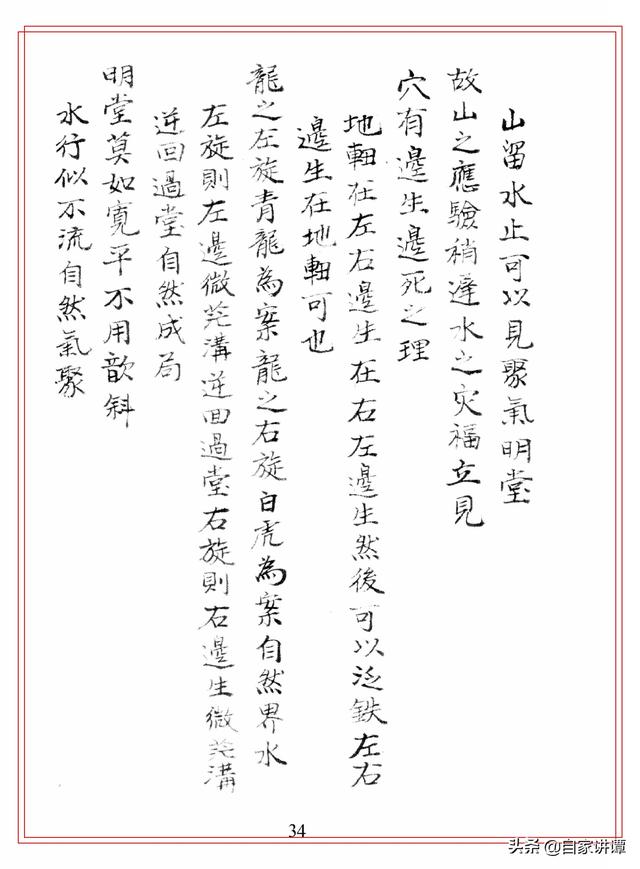 山留水止可以見聚氣明堂
故山之應驗稍遲水之灾福立見
穴有邊生邊死之理
地軸在左右邊生在右左邊生然後可以泛鉄左右
邊生在地軸可也
龍之左旋青龍為案龍之右旋白虎為案自然界水
左旋則左邊微茫溝逆回過堂右旋則右邊生微茫溝
逆回過堂自然成局
明堂莫如寬平不用歆斜
水行似不流自然氣聚
34
头条 @自家讲谭